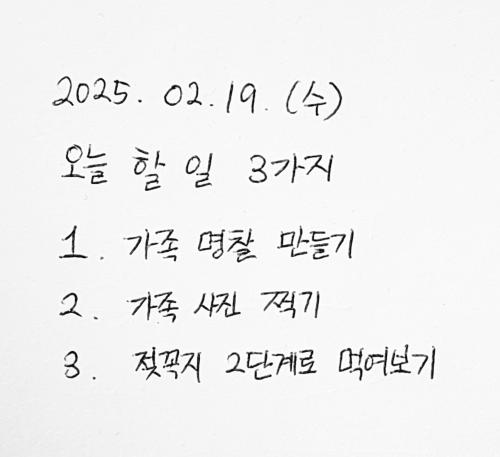 2025. 02. 19. (수)
오늘 할 일 3가지
1. 가족 명찰 만들기
2. 가족 사진 찍기
3. 젖꼭지 2단계로 먹여보기